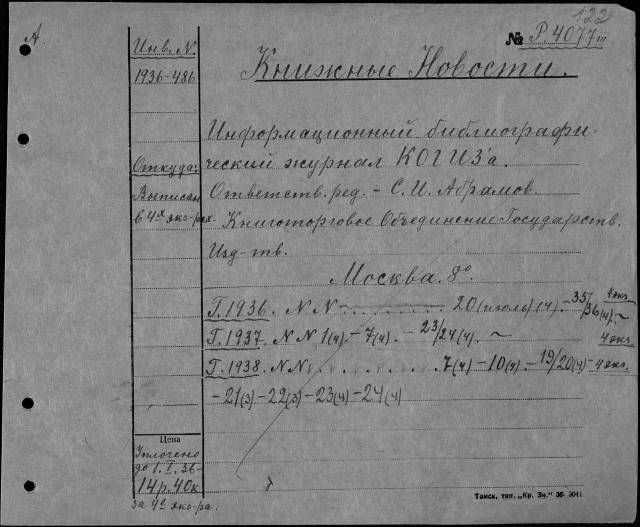 122
А.
Инв. N.
1936-486
№ Р.4077 III
Книжные Новости.
Информационный библиографи-
ческий журнал КОГИЗ'а.
Откуда:
Выписан
в 4х экз-рах.
Ответств. ред. - С. И. Абрамов.
Книготорговое Объединение Государств.
Изд-тв.
Москва. 8°.
Г. 1936. N N ........ 20 (июль) (4). - 35/36 (4) ~ 4 экз.
Г. 1937. N N 1(4) - 7(4). - 23/24 (4). ~ 4 экз
Г. 1938. N N ........ 7(4) - 10(4) - 19/20(4) - 4 экз
- 21(3) - 22(3) - 23(4) - 24(4)
Цена
Уплочено
до 1. I. 36-
14 р. 40 к
за 4 экз-ра.
Томск, тип. „Кр. Зн." 36- 3041